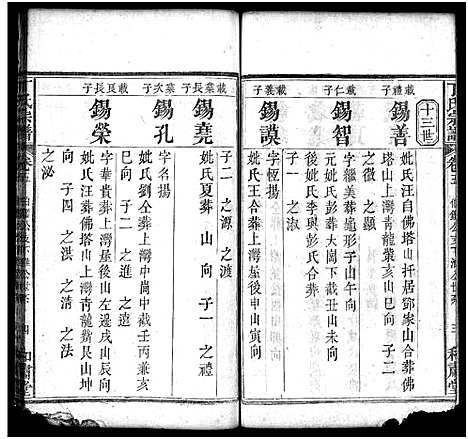 丁氏宗譜
卷五
十三世
載禮子
錫善
妣氏汪自佛塔山托居鄧家山合葬佛
塔山上灣青龍葬亥山巳向 子二
之徵 之顯
載仁子
錫智
字繼美葬龜形亥山巳向
妣氏彭葬大崗下截丑山未向
後妣氏李與彭氏合葬
載義子
錫謨
字恆揚
妣氏王合葬上灣屋後申山寅向
子二 之源 之渡
載榮長子
錫堯
妣氏夏葬 山 向 子一 之禮
載榮次子
錫孔
字名揚
妣氏劉仝葬上灣中崗中截壬丙兼亥
巳向 子二 之進 之遠
載良長子
錫榮
字華貴葬上灣屋後申山寅向
妣氏嚴葬佛塔山上灣青龍嘴艮山坤
向 子四 之洪 之清 之法
之泌
丁氏宗譜